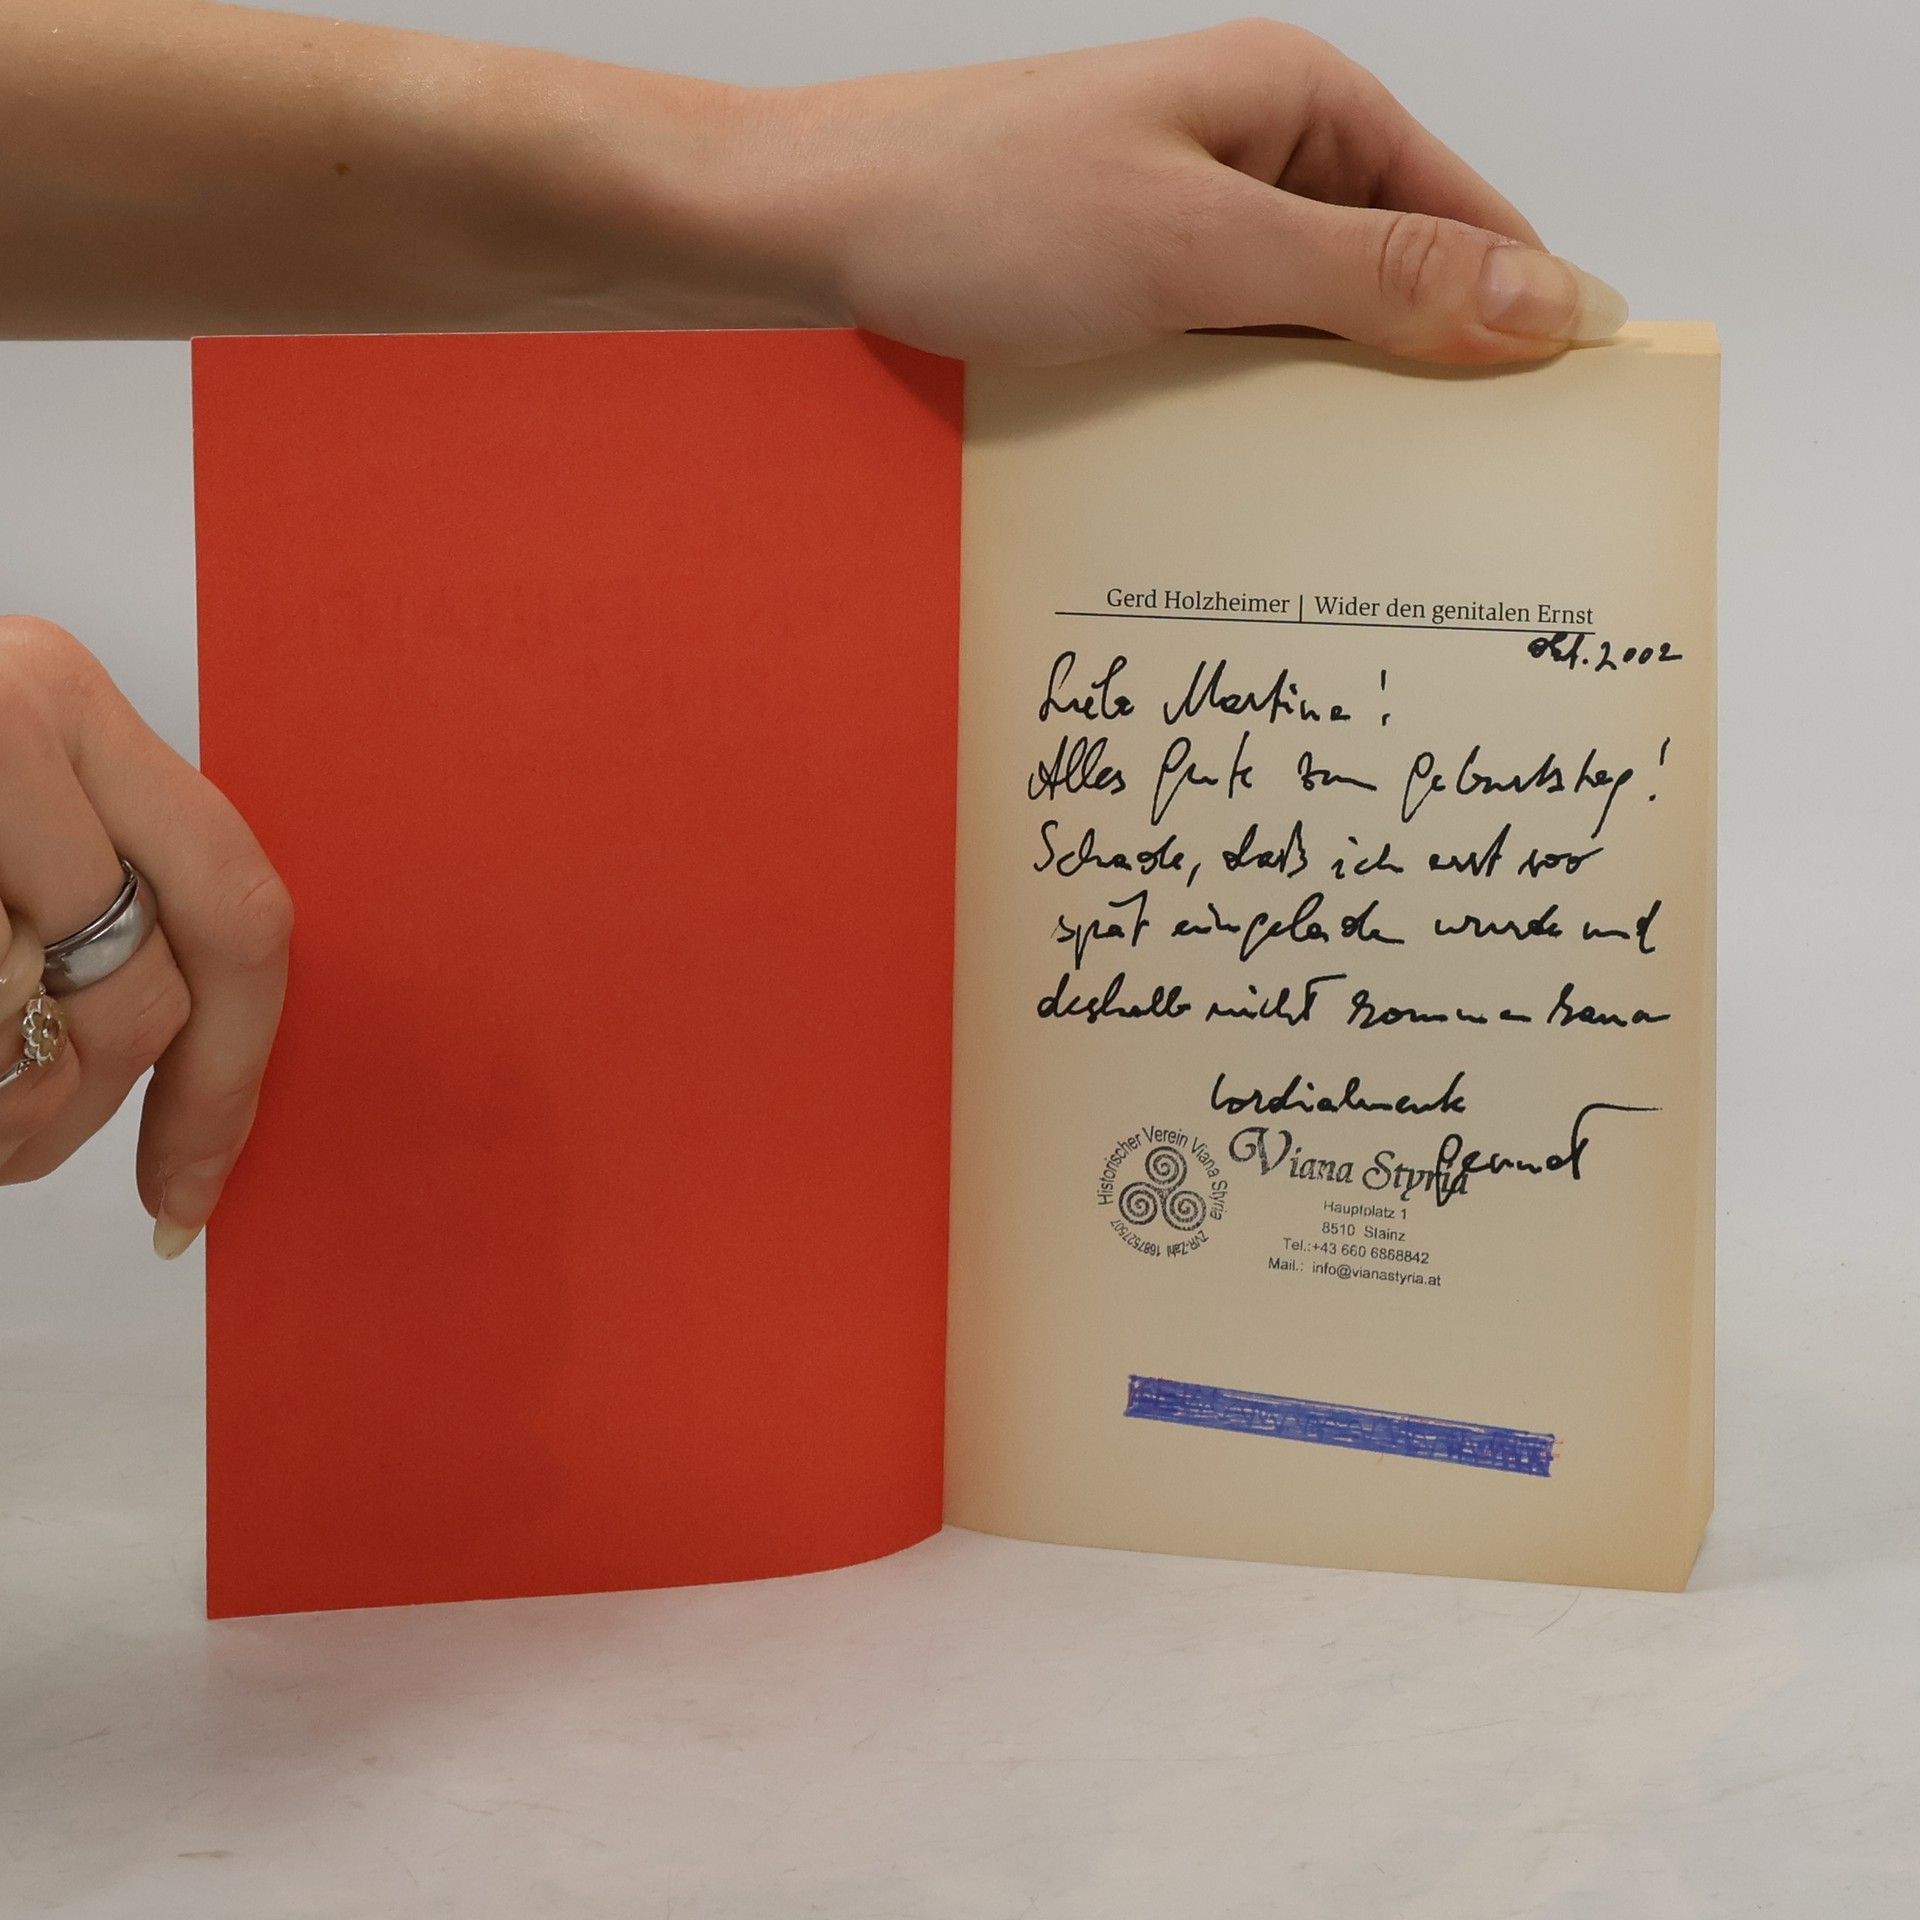 Gerd Holzheimer | Wider den genitalen Ernst
Okt. 2002
Liebe Martina!
Alles Gute zum Geburtstag!
Schade, daß ich erst so
spät eingeladen wurde und
deshalb nicht kommen kann
Cordialmente
Gernot
Historischer Verein Viana Styria
ZVR-Zahl 1687527507
Viana Styria
Hauptplatz 1
8510 Stainz
Tel.:+43 660 6868842
Mail.: info@vianastyria.at